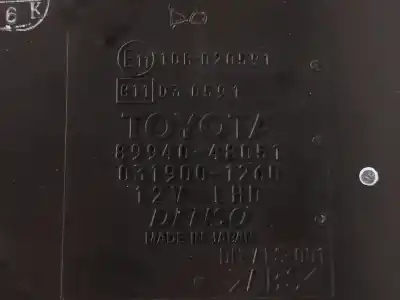 6 K
DO
E11 10R-020591
e11 03 0591
TOYOTA
89940-48051
031900-1260
12V LHD
DENSO
MADE IN JAPAN
>ABS<